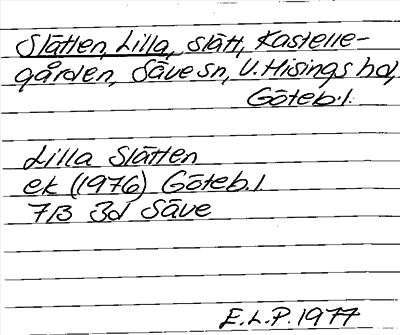 Slätten, Lilla, slätt, Kastelle-
gården, Säve sn, V. Hisings hd,
Göteb. l.
Lilla Slätten
ek (1976) Göteb. l
7B 3d Säve
E.L.P. 1977